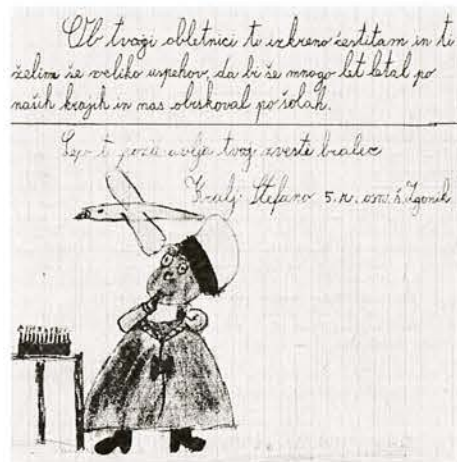 Ob tvoji obletnici ti iskreno čestitam in ti
želim še veliko uspehov, da bi še mnogo let letal po
naših krajih in nas obiskoval po šolah.
Lepo te pozdravlja tvoj zvesti bralec
Kralj Stefano 5. r. osn. š. Zgonik